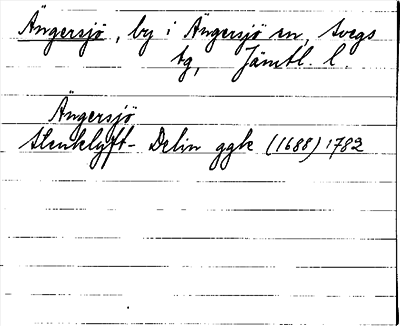 Ängersjö, by i Ängersjö sn, Svegs
tg, Jämtl. l.
Ängersjö
Stenklyft- Delin ggk (1688) 1782